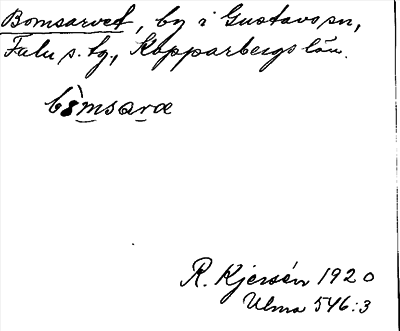 Bomsarvet, by i Gustavs sn,
Falu s. tg, Kopparbergs län.
bòmsarvæ
R. Kjersén 1920
Ulma 546:3